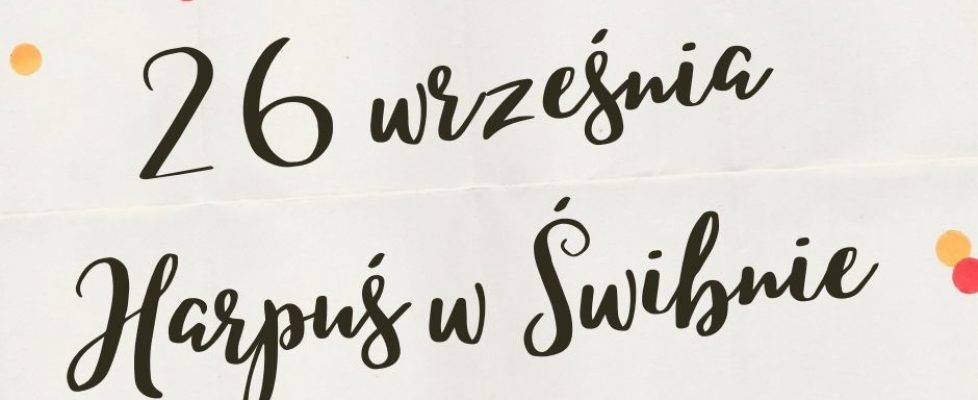 26 września
Harpuś w Świbnie